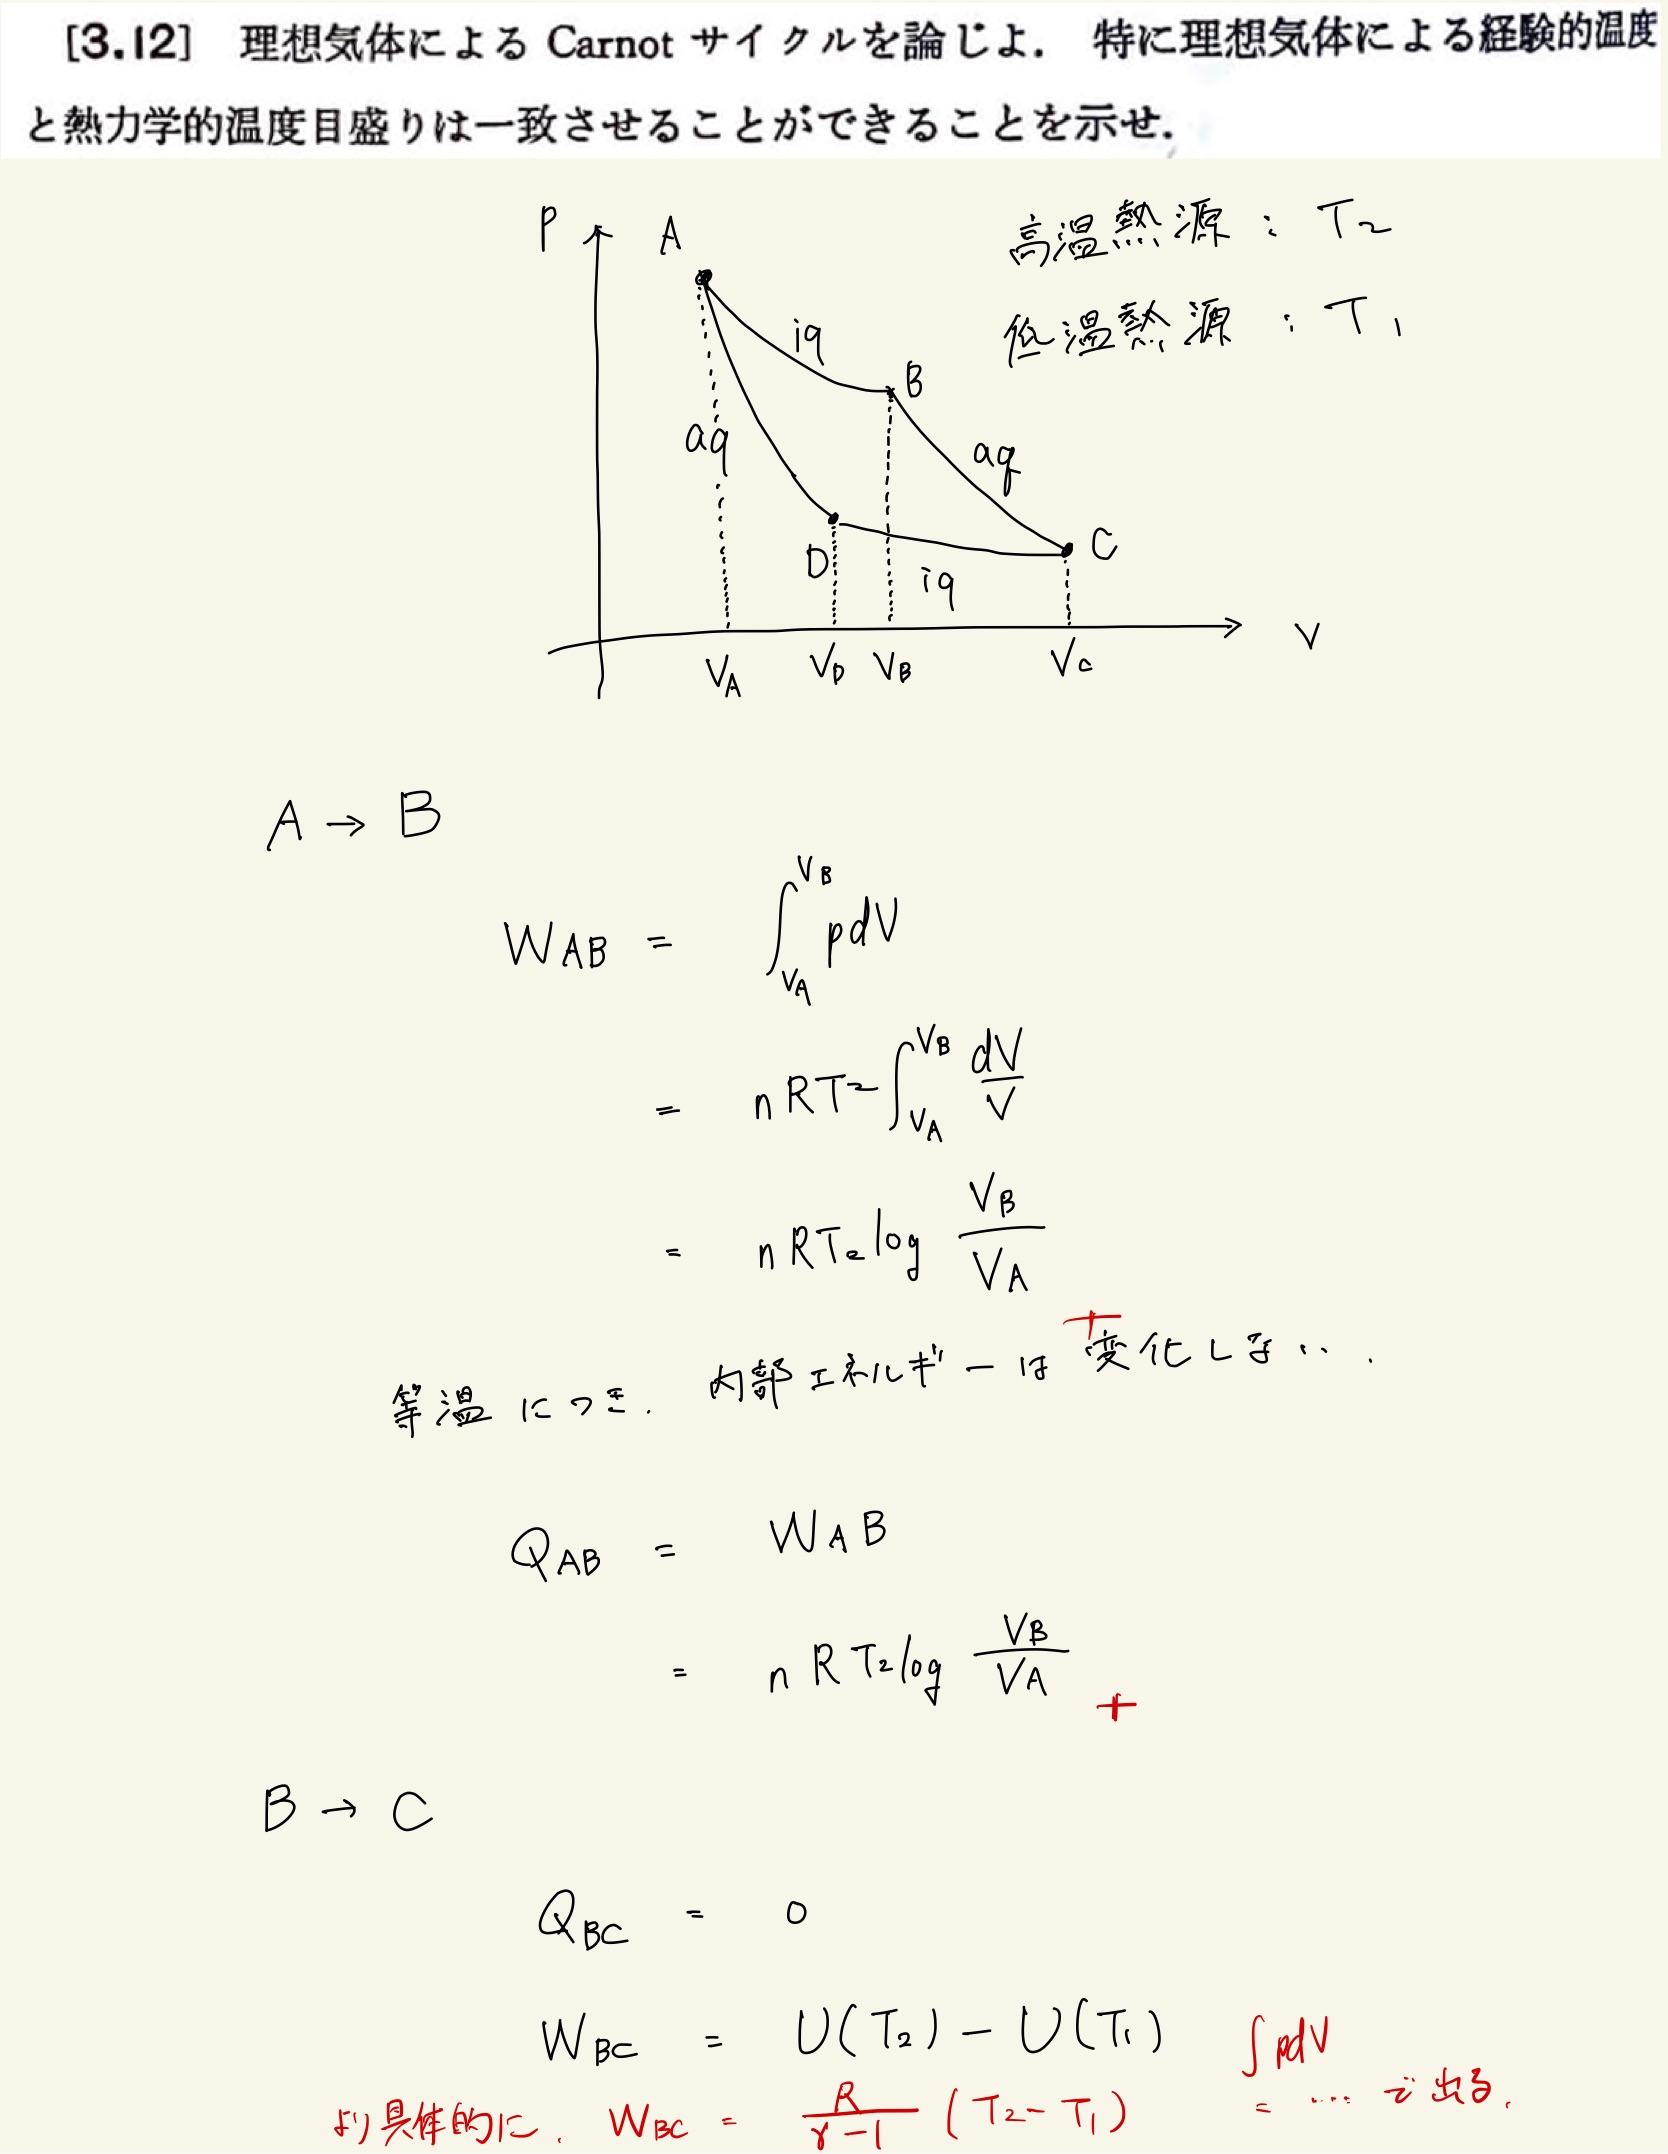 [3.12] 理想気体による Carnot サイクルを論じよ. 特に理想気体による経験的温度
と熱力学的温度目盛りは一致させることができることを示せ.
P
A
高温熱源 : T2
低温熱源 : T1
iq
B
aq
aq
D
C
iq
V
VA VD VB VC
A → B
WAB = ∫VA^VB pdV
= nRT2 ∫VA^VB dV/V
= nRT2 log VB/VA
等温につき. 内部エネルギーは変化しない.
QAB = WAB
= nRT2 log VB/VA
B → C
QBC = 0
WBC = U(T2) - U(T1) ∫pdV
より具体的に. WBC = R/γ-1 (T2-T1) = ... で出る.